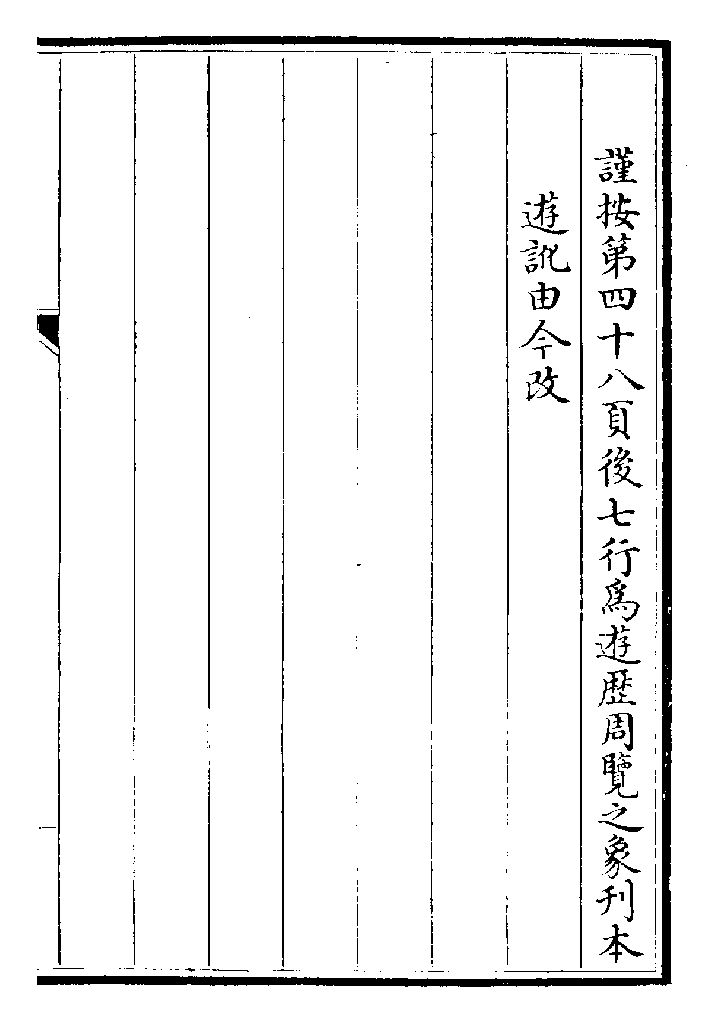 謹按第四十八頁後七行為遊歷周覽之象刊本
遊訛由今改